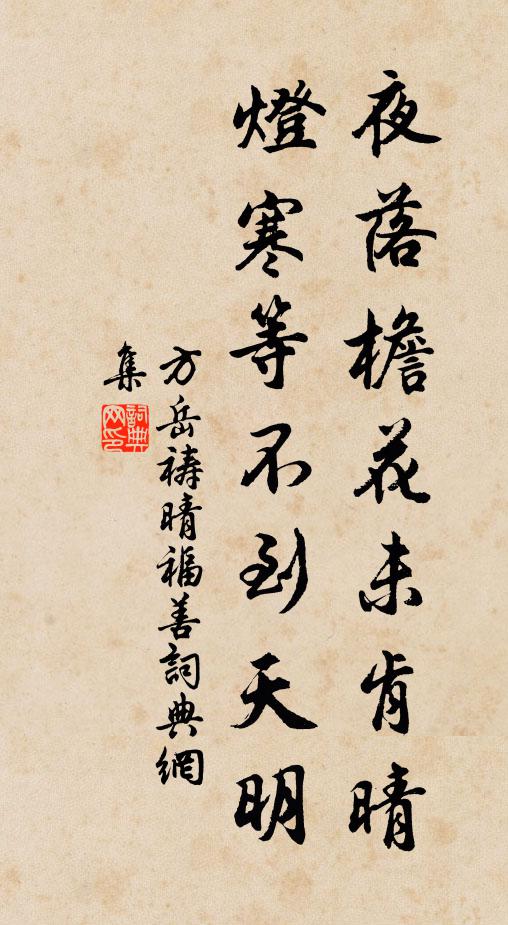 夜落檐花未肯晴
燈寒等不到天明
方岳禱晴福善詞典網
集
詞典网印